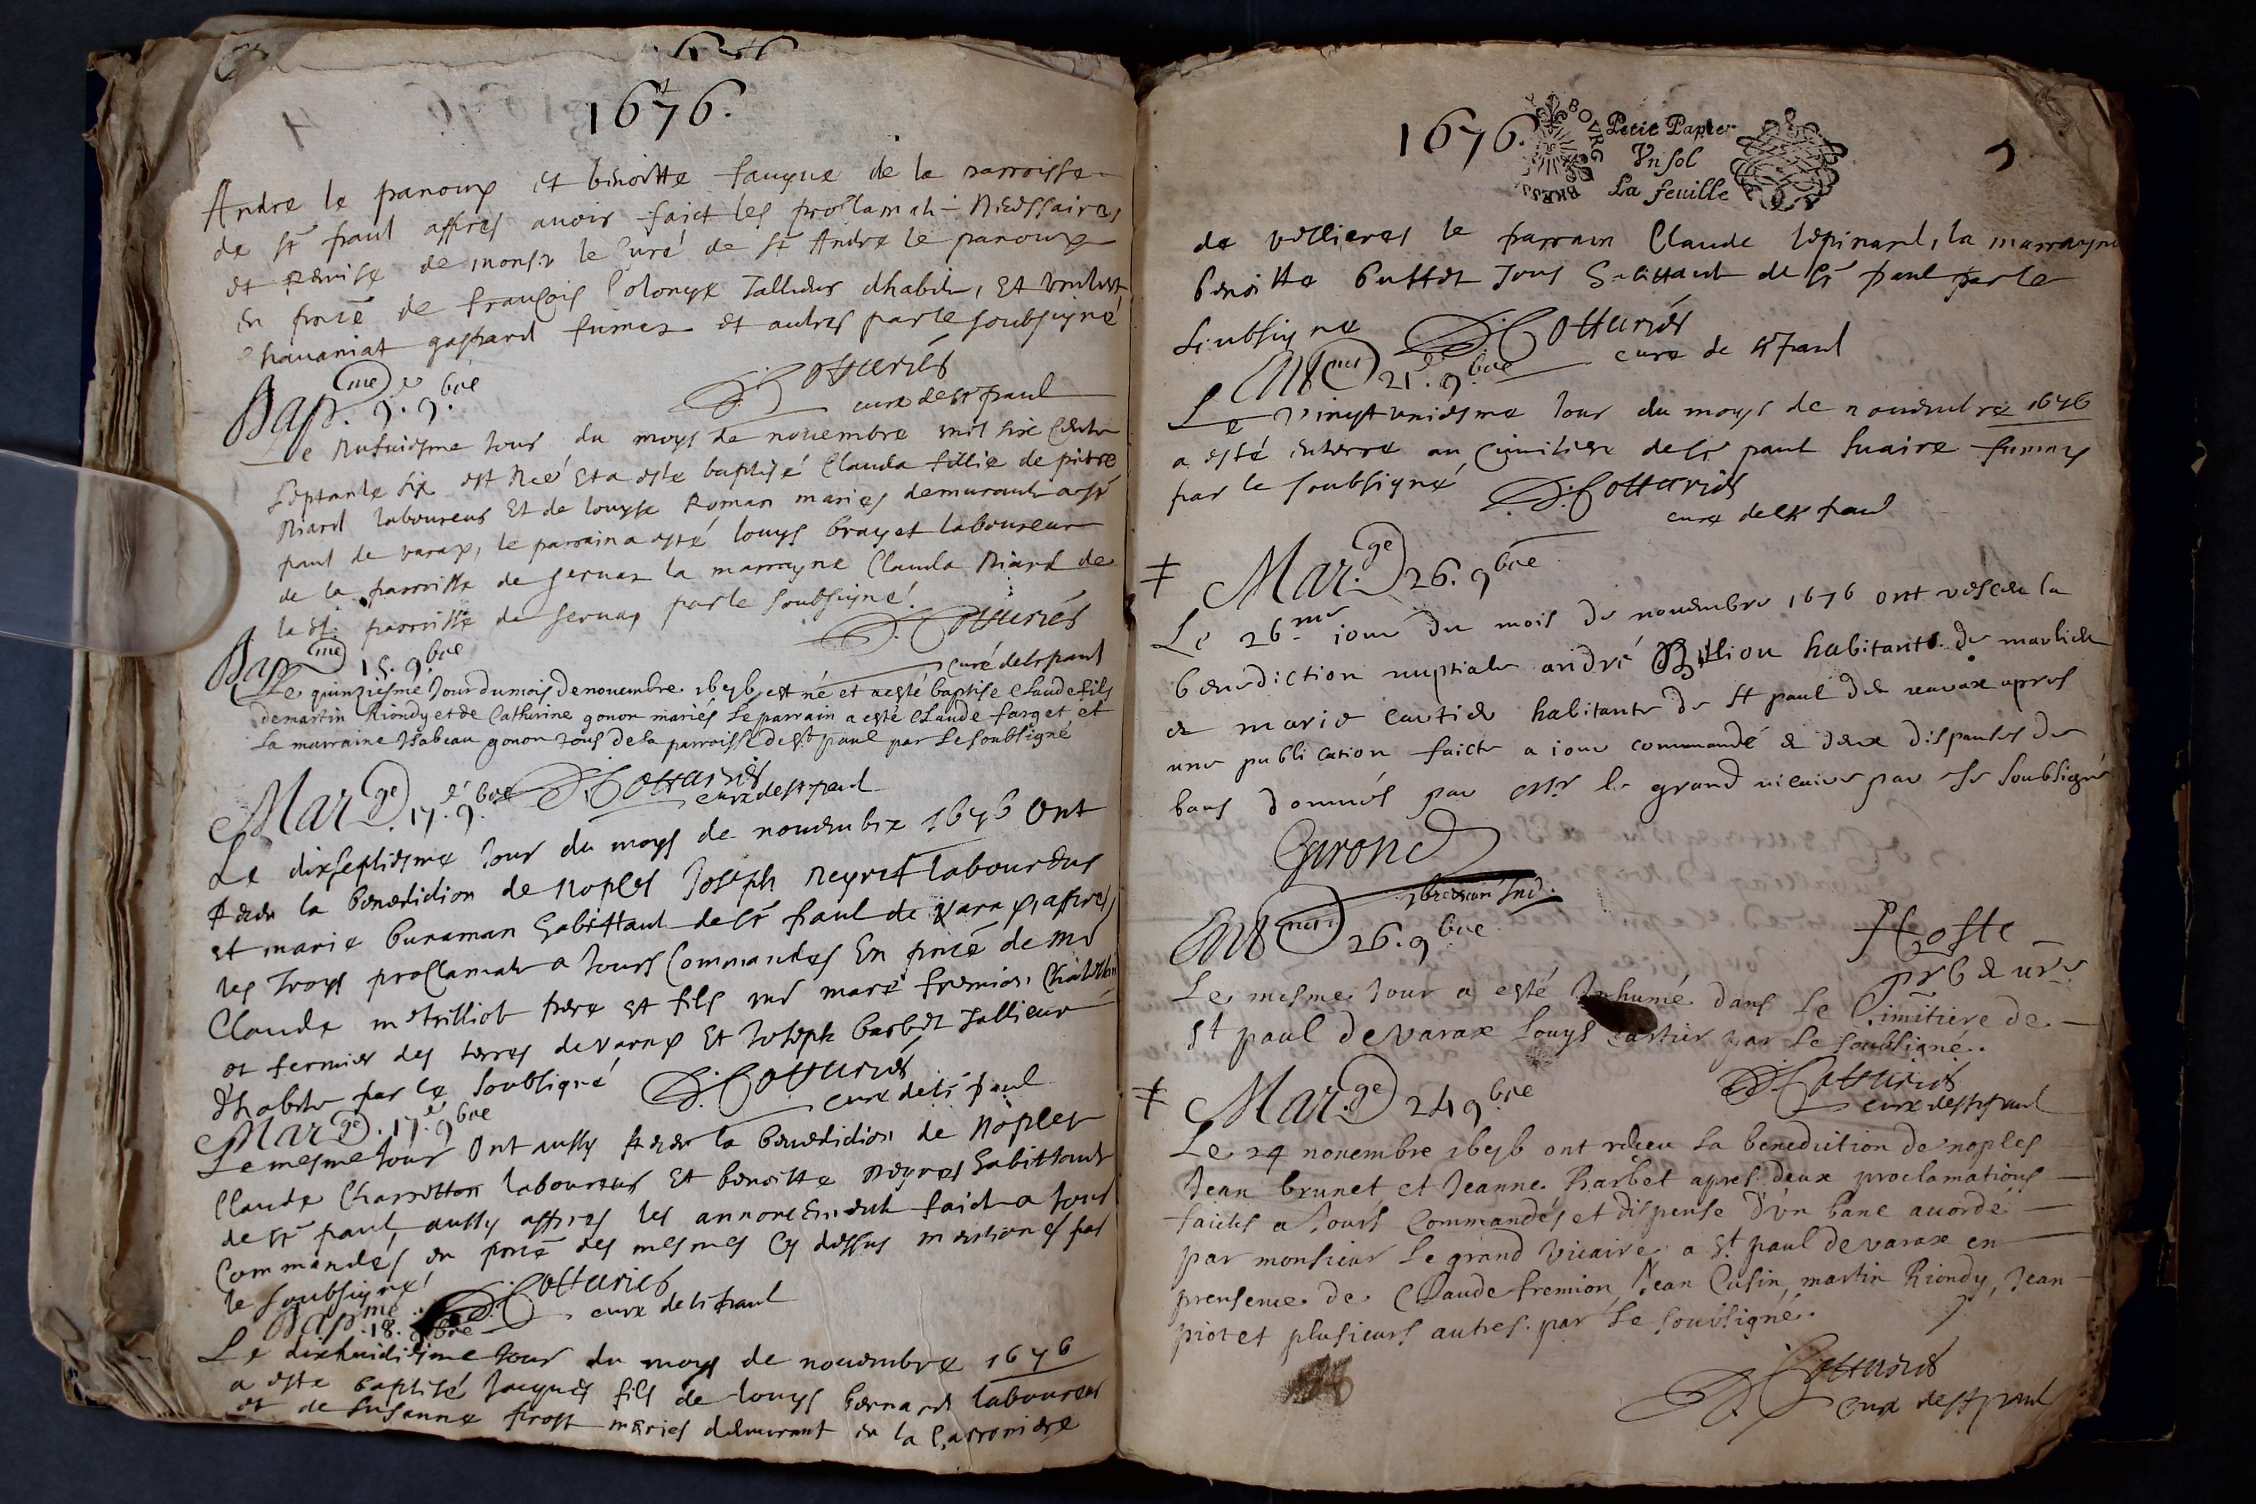 1676.
Andre le panoux et benoitte fauque de la parroisse
de st paul appres avoir faict les proclamati- necessaires
et remise de monsr le Curé de st Andre le panoux
en pnce de francois Colonge Tallieur dhabits, et
Chavaniat gaspard fumex et autres par le soubsigné
Cottarics
curé de st paul
Bapme 9e 9bre
Le Nufuiesme Jour du moys de novembre mil six Cents
septante six est Neé Et a este baptisé Clauda fillie de pierre
Niard laboureur Et de louyse Roman mariés demurants a st
paul de varax, le parrain a esté louys brayet laboureur
de la parroisse de servas la marrayne Clauda Niard de
la dt. parroisse de servas par le soubsigné.
Cottariés
curé de st paul
Bapme 15. 9bre
Le quinziesme Jour du mois de novembre 1676 est né et a esté baptise Claude fils
de martin Riondy et de Catherine gonon mariés Le parrain a esté Claude farget et
La marraine Isabeau gonon tous de la parroisse de st paul par Le soubsigné
Cottariés
curé de st paul
Marge. 17.e 9bre
Le dixseptiesme Jour du moys de novembre 1676 Ont
Receu la benediction de Nopces Joseph neyret laboureur
et marie buraman habittant de st paul de varax, appres
les Troys proclamats a Jours Commandes En pnce de mr
Claude metrilliot pere et fils mr marc fremion, Chatellain
et fermier des terres de varax Et Joseph barbet Tallieur
d'habits par le soubsigné
Cottariés
curé de st paul
Marge. 17.e 9bre
Le mesme Jour Ont aussy Receu la benediction de Nopces
Claude Charretton laboureur Et benoitte neyret habittants
de st paul, aussy appres les annoncement faict a Jours
Commandés en pnce des mesmes Cy dessus mentionés par
le soubsigné
Cottariés
curé de st paul
Bapme 18. 9bre
Le dixhuidiesme Jour du moys de novembre 1676
a este baptisé Jacques fils de louys bernard laboureur
et de Susanne frost mariés demurant en la Carroniere
1676. BOVRG BRESSE
Petit Papier
Vn sol
La feuille
5
de vellieres le parrain Claude lepinard, la marrayne
benoitte buttet Tous habittant de st paul par le
soubsigne
Cottariés
curé de st paul
Entment 21.e 9bre
Le vingt uniesme Jour du moys de novembre 1676
a esté enterre au Cimitiere de st paul Suaire fumex
par le soubsigné
Cottariés
curé de st paul
Marge 26. 9bre
Le 26me iour du mois de novembre 1676 ont receu la
benediction nuptiale andré Billiou habitant de marlieu
et marie cartier habitante de st paul de varax apres
une publication faicte a iour commandé et deux dispanses de
bans donnés par msr le grand vicaire par le soubsigné
Garond
Entment 26. 9bre
PCoste
prb & vre
Le mesme Jour a esté Inhumé dans Le Cimitiere de
st paul de varax Louys Cartier par Le soubsigné.
Cottariés
curé de st paul
Marge 24 9bre
Le 24 novembre 1676 ont receu La benediction de nopces
Jean brunet et Jeanne barbet apres deux proclamations
faictes a Jours Commandés et dispense d'un banc accordé
par monsieur Le grand Vicaire a st paul de varax en
presence de Claude fremion, Jean Cusin, martin Riondy, Jean
piot et plusieurs autres par Le soubsigné.
Cottariés
curé de st paul